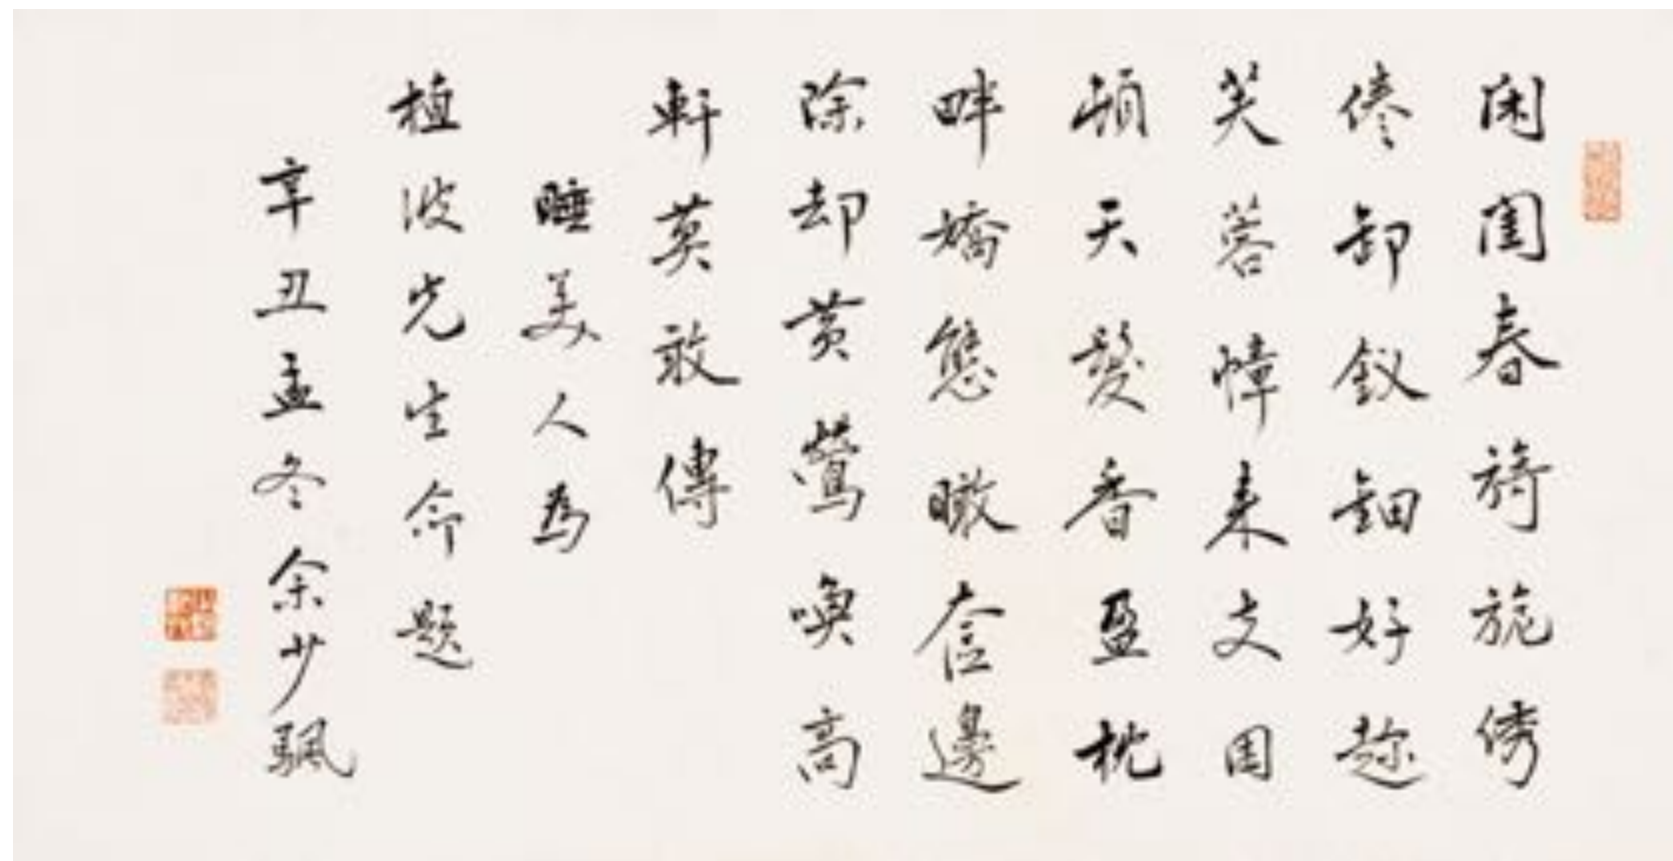 閑閨春旖旎綉
倦卸釵鈿好趁
芙蓉幛來支困
頓天髮香盈枕
畔嬌態瞰奩邊
除却黃鶯喚高
軒莫敢傳
睡美人為
植波先生命題
辛丑孟冬余少颿